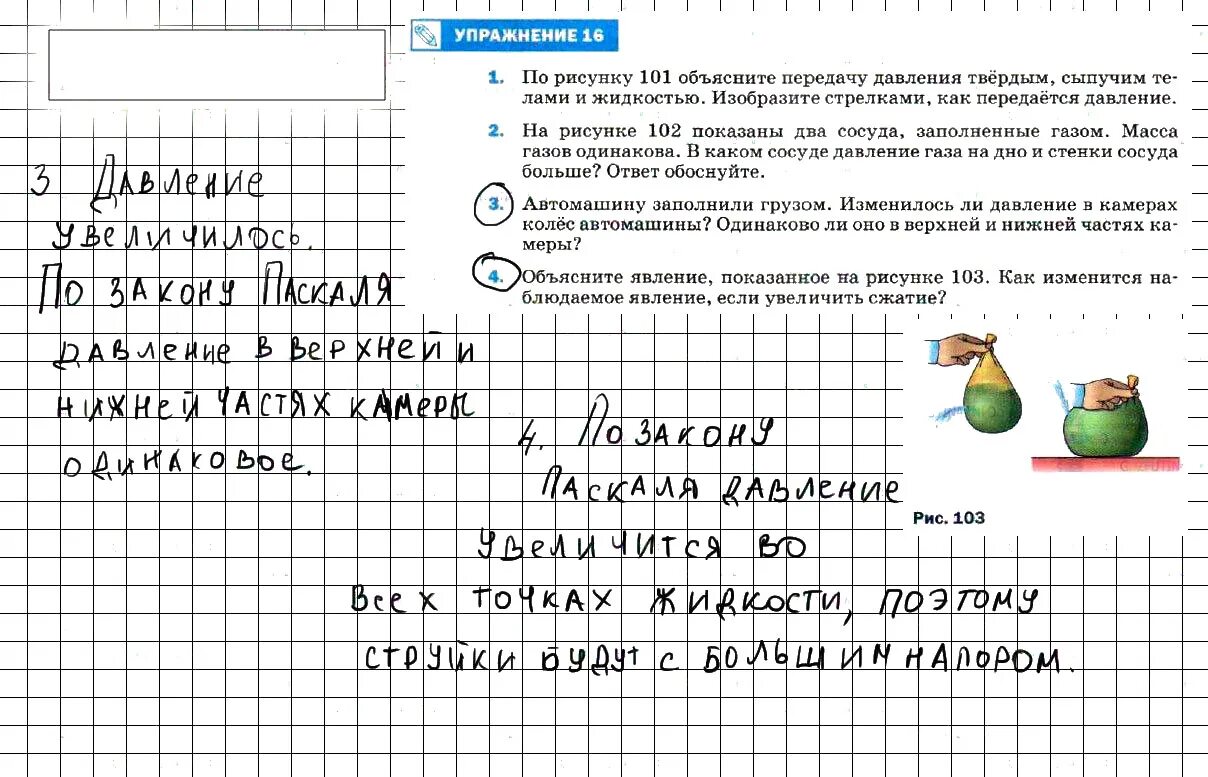 УПРАЖНЕНИЕ 16
1. По рисунку 101 объясните передачу давления твёрдым, сыпучим те-
лами и жидкостью. Изобразите стрелками, как передаётся давление.
2. На рисунке 102 показаны два сосуда, заполненные газом. Масса
газов одинакова. В каком сосуде давление газа на дно и стенки сосуда
больше? Ответ обоснуйте.
3. Автомашину заполнили грузом. Изменилось ли давление в камерах
колёс автомашины? Одинаково ли оно в верхней и нижней частях ка-
меры?
4. Объясните явление, показанное на рисунке 103. Как изменится на-
блюдаемое явление, если увеличить сжатие?
3 Давление
увеличилось.
По закону Паскаля
давление в верхней и
нижней частях камеры
одинаковое.
Рис. 103
4. По закону
Паскаля давление
увеличится во
всех точках жидкости, поэтому
струйки будут с большим напором.